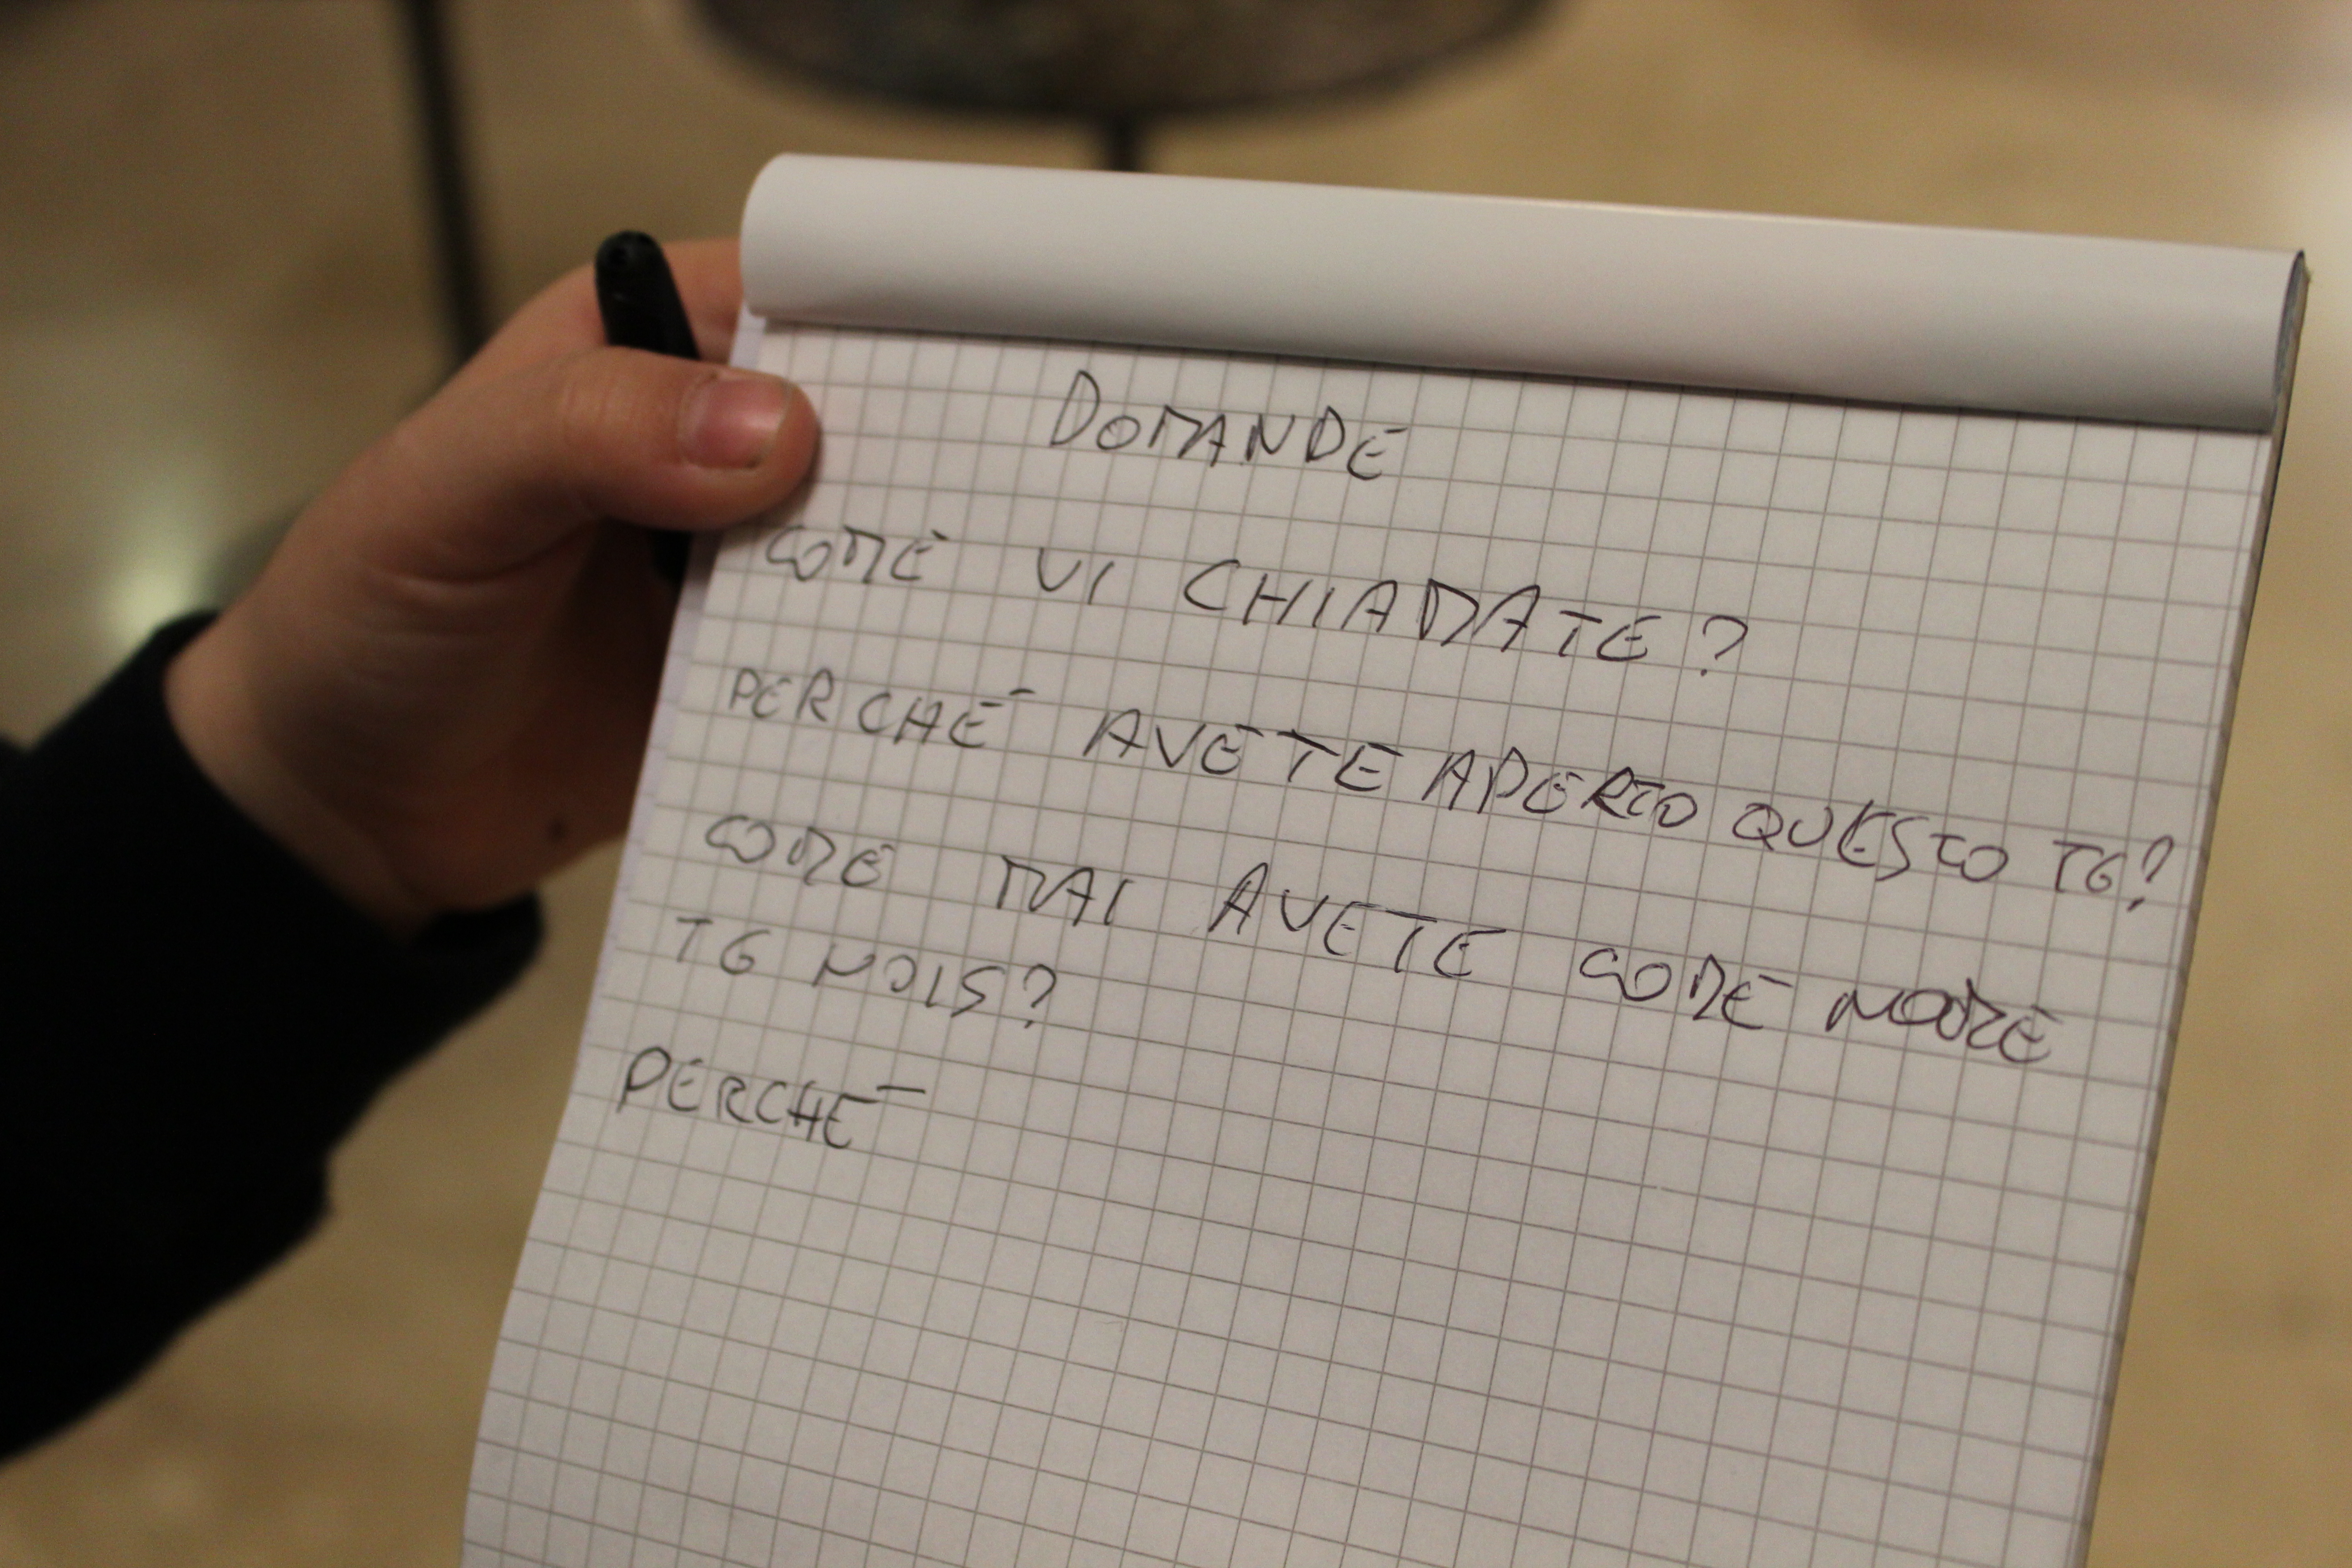 DOMANDE
COME VI CHIAMATE?
PERCHÉ AVETE APERTO QUESTO TG?
COME MAI AVETE COME NOME
TG NOIS?
PERCHÉ